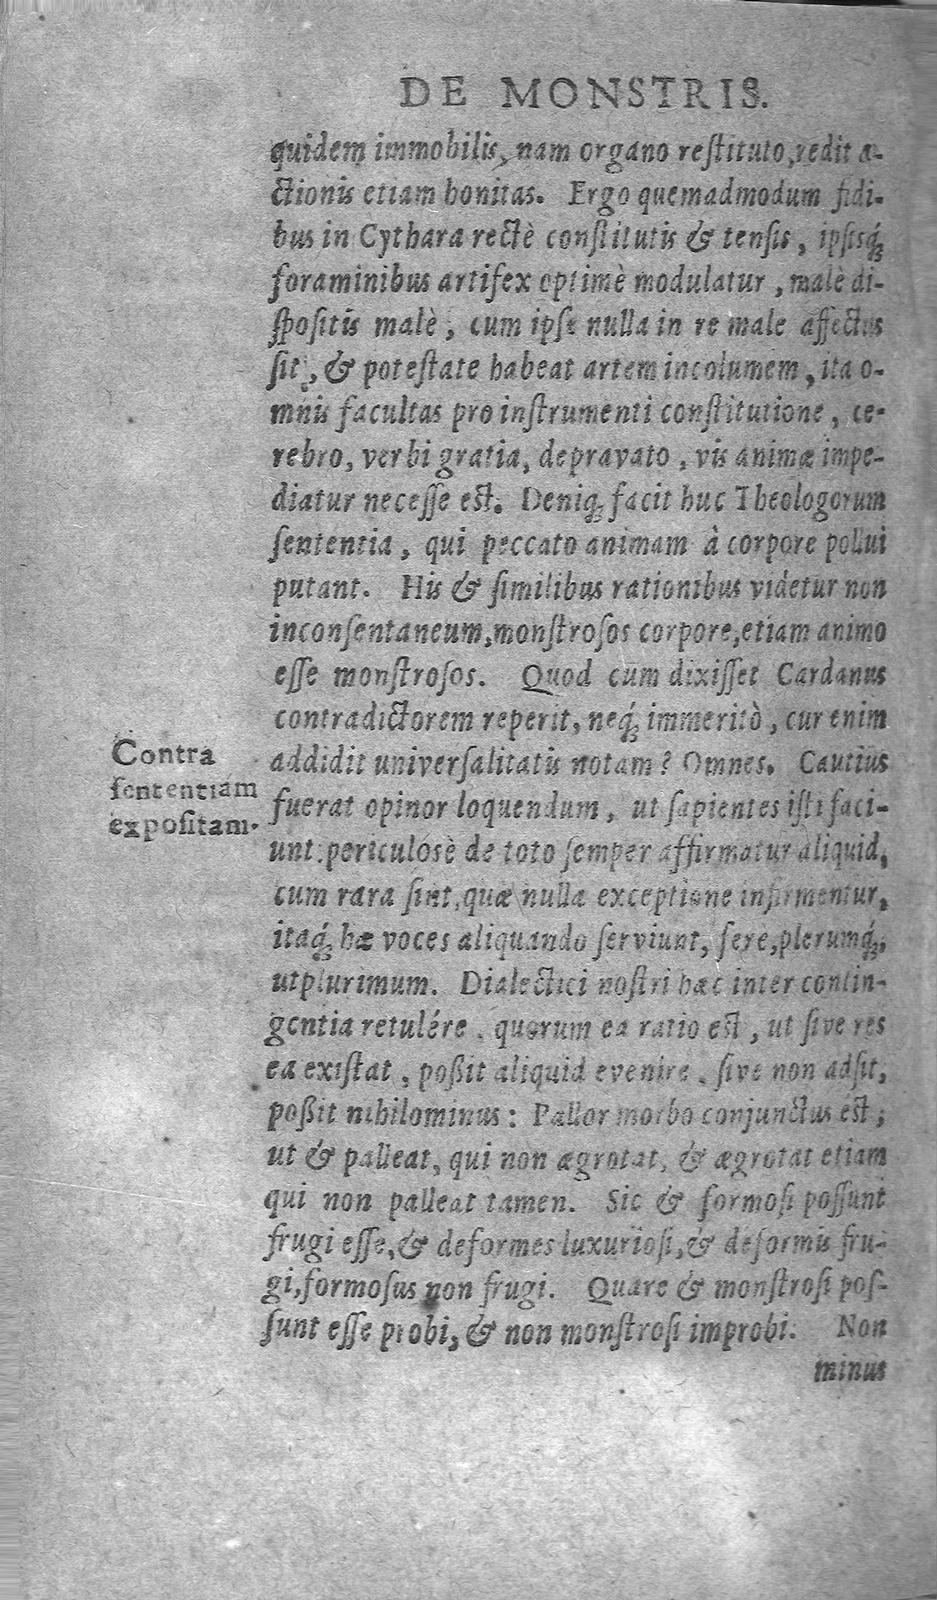 DE MONSTRIS.
quidem immobilis, nam organo reſtituto, redit a-
ctionis etiam bonitas. Ergo quemadmodum fidi-
bus in Cythara rectè conſtitutis & tenſis, ipſisq́;
foraminibus artifex optimè modulatur, malè di-
ſpoſitis malè, cum ipſe nulla in re male affectus
ſit, & poteſtate habeat artem incolumem, ita o-
mnis facultas pro inſtrumenti conſtitutione, ce-
rebro, verbi gratia, depravato, vis animæ impe-
diatur neceſſe eſt. Deniq; facit huc Theologorum
ſententia, qui peccato animam à corpore pollui
putant. His & ſimilibus rationibus videtur non
inconſentaneum, monſtroſos corpore, etiam animo
eſſe monſtroſos. Quod cum dixiſſet Cardanus
contradictorem reperit, neq́; immeritò, cur enim
Contra
ſententiam
expoſitam.
addidit univerſalitatis notam? Omnes. Cautius
fuerat opinor loquendum, ut ſapientes iſti faci-
unt: periculosè de toto ſemper affirmatur aliquid,
cum rara ſint, quæ nulla exceptione infirmentur,
itaq́; hæ voces aliquando ſerviunt, ferè, plerumq́;,
utplurimum. Dialectici noſtri hæc inter contin-
gentia retulére, quorum ea ratio eſt, ut ſive res
ea exiſtat, poßit aliquid evenire, ſive non adſit,
poßit nihilominus: Pallor morbo conjunctus eſt,
ut & palleat, qui non ægrotat, & ægrotat etiam
qui non palleat tamen. Sic & formoſi poſſunt
frugi eſſe, & deformes luxurioſi, & deformis fru-
gi, formoſus non frugi. Quare & monſtroſi poſ-
ſunt eſſe probi, & non monſtroſi improbi. Non
minus